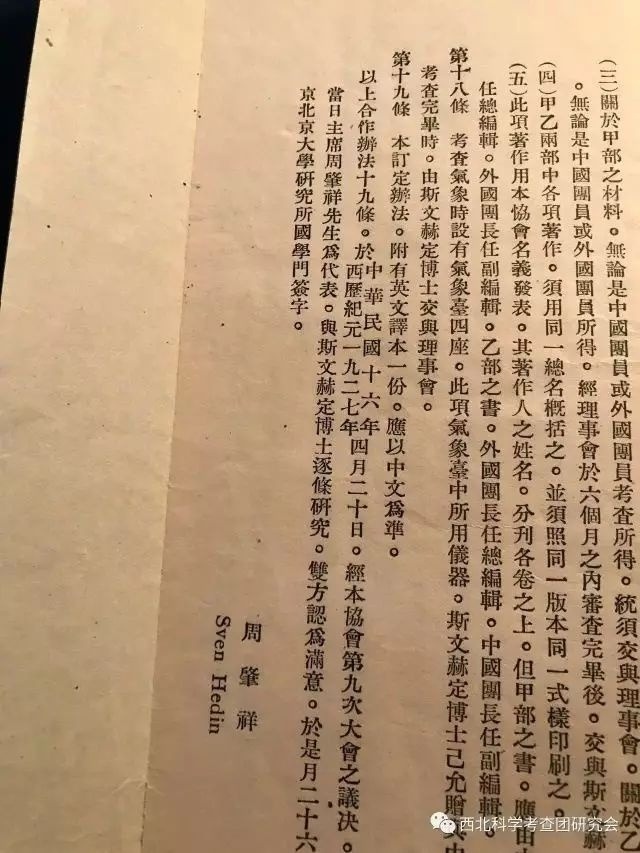 （三）關於甲部之材料。無論是中國團員或外國團員考查所得。統須交與理事會。關於乙
。無論是中國團員或外國團員所得。經理事會於六個月之內審查完畢後。交與斯文赫
（四）甲乙兩部中各項著作。須用同一總名概括之。並須照同一版本同一式樣印刷之。
（五）此項著作用本協會名義發表。其著作人之姓名。分刋各卷之上。但甲部之書。應由
任總編輯。外國團長任副編輯。乙部之書。外國團長任總編輯。中國團長任副編輯。
第十八條　考查氣象時設有氣象臺四座。此項氣象臺中所用儀器。斯文赫定博士已允贈與中
考查完畢時。由斯文赫定博士交與理事會。
第十九條　本訂定辦法。附有英文譯本一份。應以中文爲準。
以上合作辦法十九條。於中華民國十六年西歷紀元一九二七年四月二十日。經本協會第九次大會之議决。
當日主席周肇祥先生爲代表。與斯文赫定博士逐條研究。雙方認爲滿意。於是月二十六
京北京大學研究所國學門簽字。
周肇祥
Sven Hedin
西北科学考查团研究会